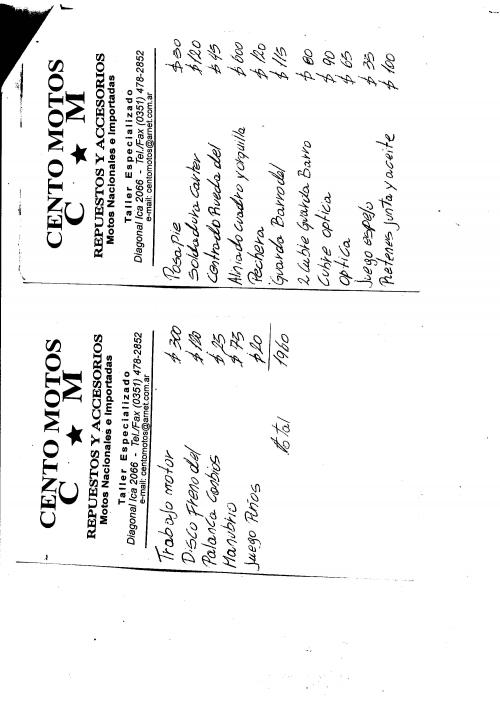 CENTO MOTOS
C ★ M
REPUESTOS Y ACCESORIOS
Motos Nacionales e Importadas
Taller Especializado
Diagonal Ica 2066 - Tel./Fax (0351) 478-2852
e-mail: centomotos@arnet.com.ar
Posa pie $ 80
Soldadura Carter $ 120
Centrado Rueda del $ 45
Alniado cuadro y orquilla $ 600
Pechera $ 120
Guarda Barro del $ 115
2 Cubre Guarda Barro $ 80
Cubre optica $ 90
optica $ 65
Juego espejo $ 35
Retenes junta y aceite $ 100
CENTO MOTOS
C ★ M
REPUESTOS Y ACCESORIOS
Motos Nacionales e Importadas
Taller Especializado
Diagonal Ica 2066 - Tel./Fax (0351) 478-2852
e-mail: centomotos@arnet.com.ar
Trabajo motor $ 300
Disco Freno del $ 120
Palanca Cambios $ 25
Manubrio $ 75
Juego Puños $ 20
Total 1960